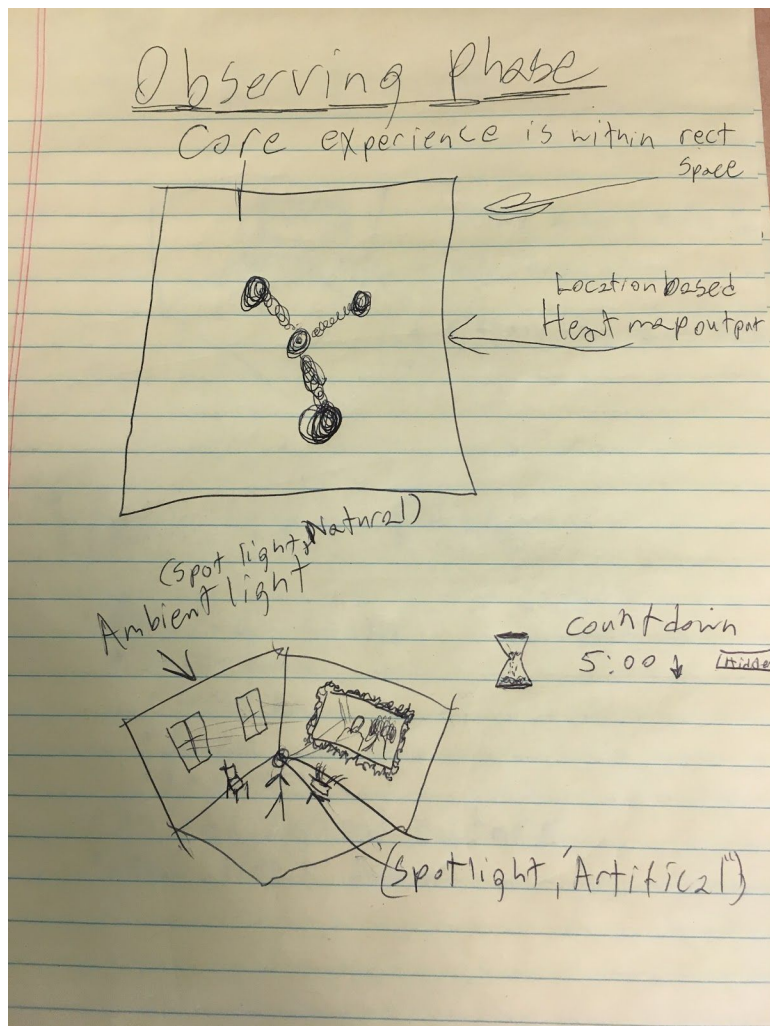 Observing Phase
Core experience is within rect
space
Location based
Heat map output
(Spot light, Natural)
Ambient light
countdown
5:00 ↓
Hidde
(Spotlight, "Artifical")